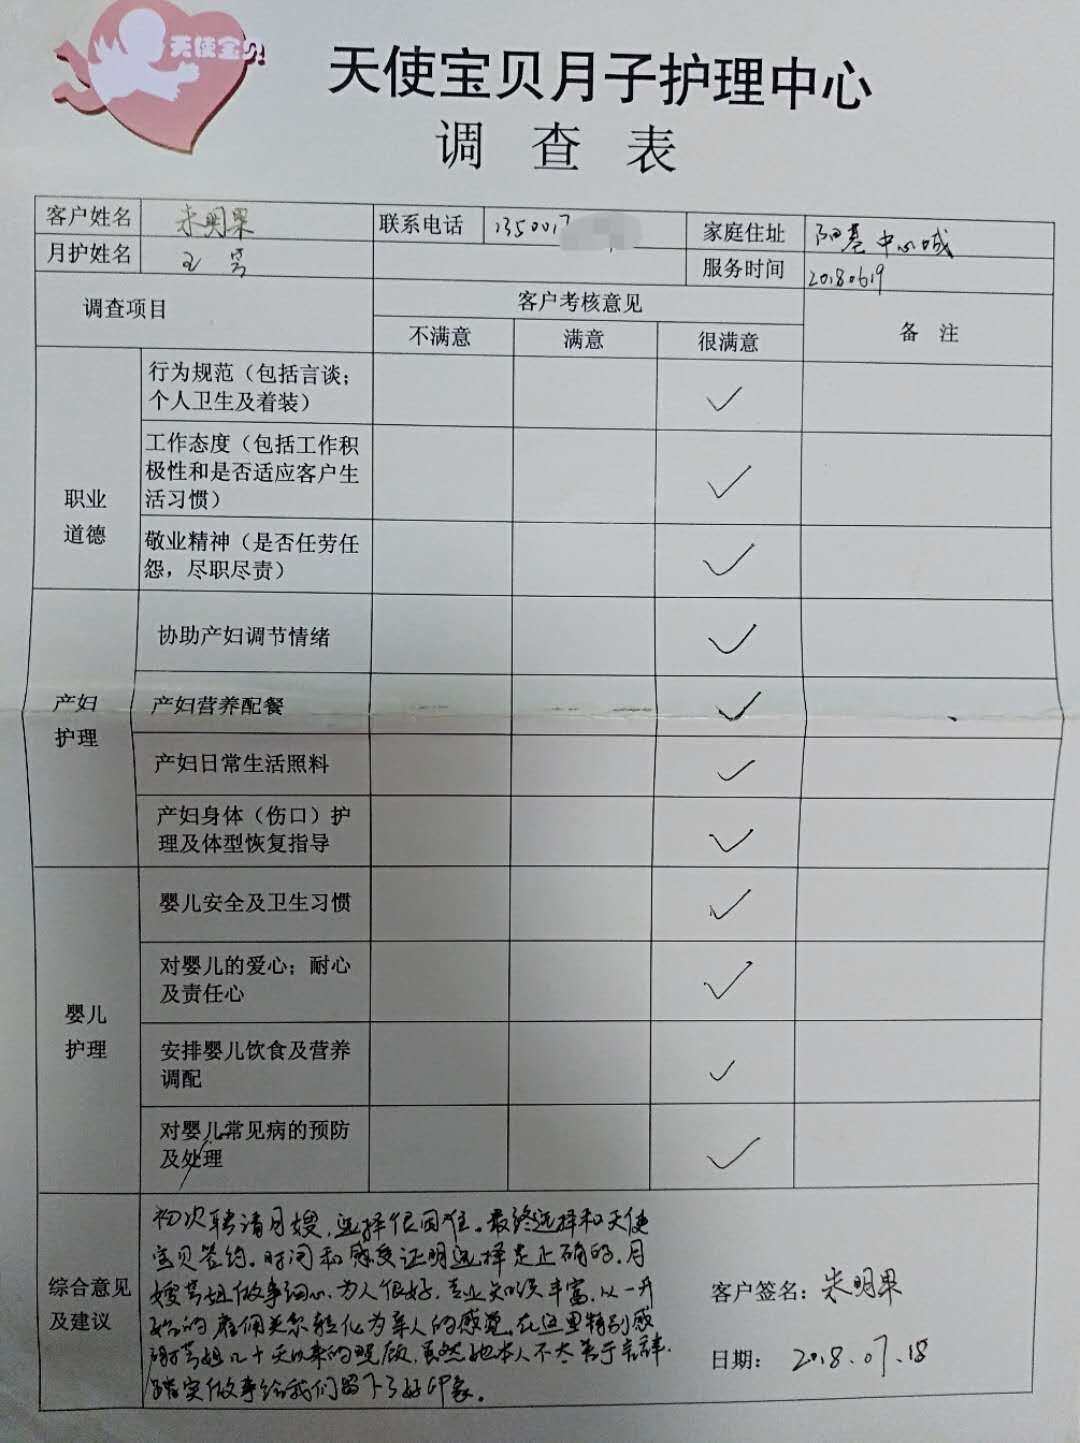 天使宝贝
天使宝贝月子护理中心
调 查 表
客户姓名 朱明果 联系电话 1350017 家庭住址 阳基中心城
月护姓名 王芳 服务时间 20180619
调查项目 客户考核意见 备 注
不满意 满意 很满意
职业
道德
行为规范（包括言谈；
个人卫生及着装） ✓
工作态度（包括工作积
极性和是否适应客户生
活习惯） ✓
敬业精神（是否任劳任
怨，尽职尽责） ✓
产妇
护理
协助产妇调节情绪 ✓
产妇营养配餐 ✓
产妇日常生活照料 ✓
产妇身体（伤口）护
理及体型恢复指导 ✓
婴儿
护理
婴儿安全及卫生习惯 ✓
对婴儿的爱心；耐心
及责任心 ✓
安排婴儿饮食及营养
调配 ✓
对婴儿常见病的预防
及处理 ✓
综合意见
及建议
初次聘请月嫂，选择很困难。最终选择和天使
宝贝签约。时间和感受证明选择是正确的。月
嫂芳姐做事细心，为人很好，专业知识丰富，从一开
始的雇佣关系转化为亲人的感觉。在这里特别感
谢芳姐几十天以来的照顾，虽然她本人不太善于言辞，
踏实做事给我们留下了好印象。
客户签名：朱明果
日期： 2018.07.18